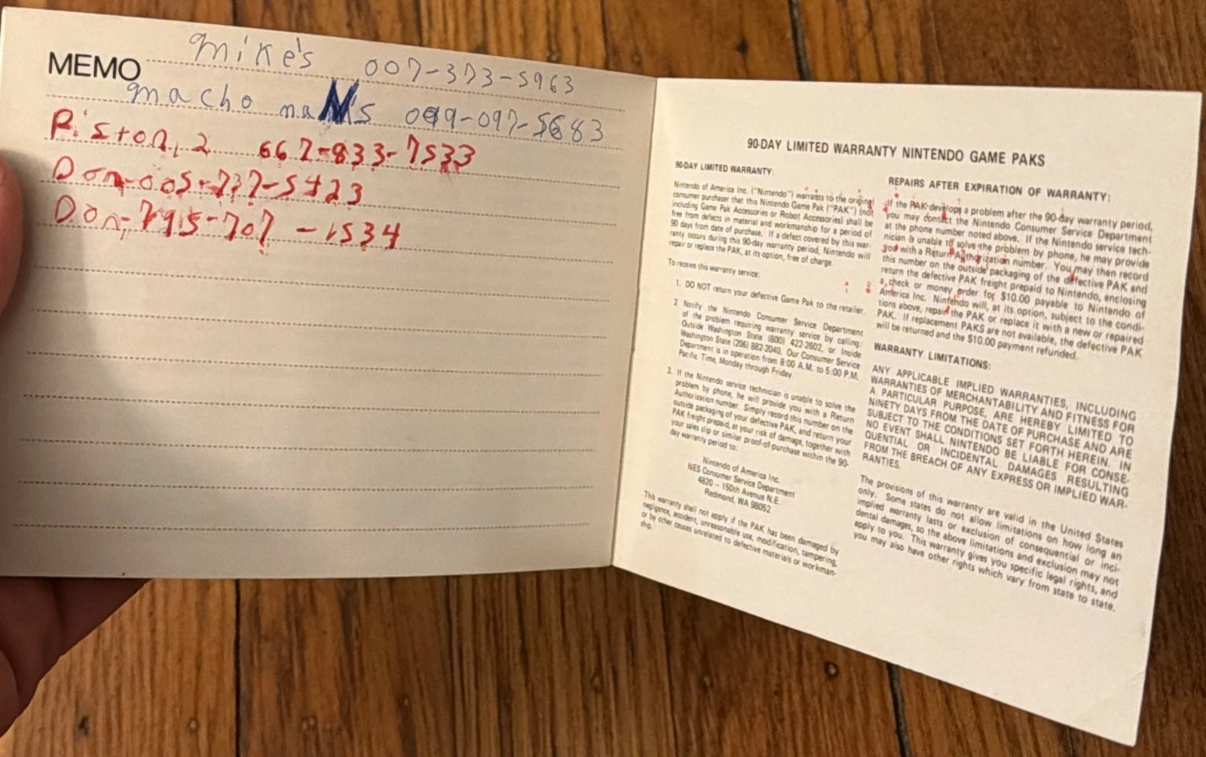 MEMO
Mike's 007-373-5963
macho maN's 099-097-5683
Piston, 2 667-833-7533
Don-005-737-5423
Don, 795-707-1534
90-DAY LIMITED WARRANTY NINTENDO GAME PAKS
90-DAY LIMITED WARRANTY:
Nintendo of America Inc. ("Nintendo") warrants to the original
consumer purchaser that this Nintendo Game Pak ("PAK") (not
including Game Pak Accessories or Robot Accessories) shall be
free from defects in material and workmanship for a period of
90 days from date of purchase. If a defect covered by this war-
ranty occurs during this 90-day warranty period, Nintendo will
repair or replace the PAK, at its option, free of charge.
To receive this warranty service:
1. DO NOT return your defective Game Pak to the retailer.
2. Notify the Nintendo Consumer Service Department
of the problem requiring warranty service by calling:
Outside Washington State (800) 422-2602, or Inside
Washington State (206) 882-2040. Our Consumer Service
Department is in operation from 8:00 A.M. to 5:00 P.M.
Pacific Time, Monday through Friday.
3. If the Nintendo service technician is unable to solve the
problem by phone, he will provide you with a Return
Authorization number. Simply record this number on the
outside packaging of your defective PAK, and return your
PAK freight prepaid, at your risk of damage, together with
your sales slip or similar proof-of-purchase within the 90-
day warranty period to:
Nintendo of America Inc.
NES Consumer Service Department
4820 - 150th Avenue N.E.
Redmond, WA 98052
This warranty shall not apply if the PAK has been damaged by
negligence, accident, unreasonable use, modification, tampering,
or by other causes unrelated to defective materials or workman-
ship.
REPAIRS AFTER EXPIRATION OF WARRANTY:
If the PAK develops a problem after the 90-day warranty period,
you may contact the Nintendo Consumer Service Department
at the phone number noted above. If the Nintendo service tech-
nician is unable to solve the problem by phone, he may provide
you with a Return Authorization number. You may then record
this number on the outside packaging of the defective PAK and
return the defective PAK freight prepaid to Nintendo, enclosing
a check or money order for $10.00 payable to Nintendo of
America Inc. Nintendo will, at its option, subject to the condi-
tions above, repair the PAK or replace it with a new or repaired
PAK. If replacement PAKS are not available, the defective PAK
will be returned and the $10.00 payment refunded.
WARRANTY LIMITATIONS:
ANY APPLICABLE IMPLIED WARRANTIES, INCLUDING
WARRANTIES OF MERCHANTABILITY AND FITNESS FOR
A PARTICULAR PURPOSE, ARE HEREBY LIMITED TO
NINETY DAYS FROM THE DATE OF PURCHASE AND ARE
SUBJECT TO THE CONDITIONS SET FORTH HEREIN. IN
NO EVENT SHALL NINTENDO BE LIABLE FOR CONSE-
QUENTIAL OR INCIDENTAL DAMAGES RESULTING
FROM THE BREACH OF ANY EXPRESS OR IMPLIED WAR-
RANTIES.
The provisions of this warranty are valid in the United States
only. Some states do not allow limitations on how long an
implied warranty lasts or exclusion of consequential or inci-
dental damages, so the above limitations and exclusion may not
apply to you. This warranty gives you specific legal rights, and
you may also have other rights which vary from state to state.